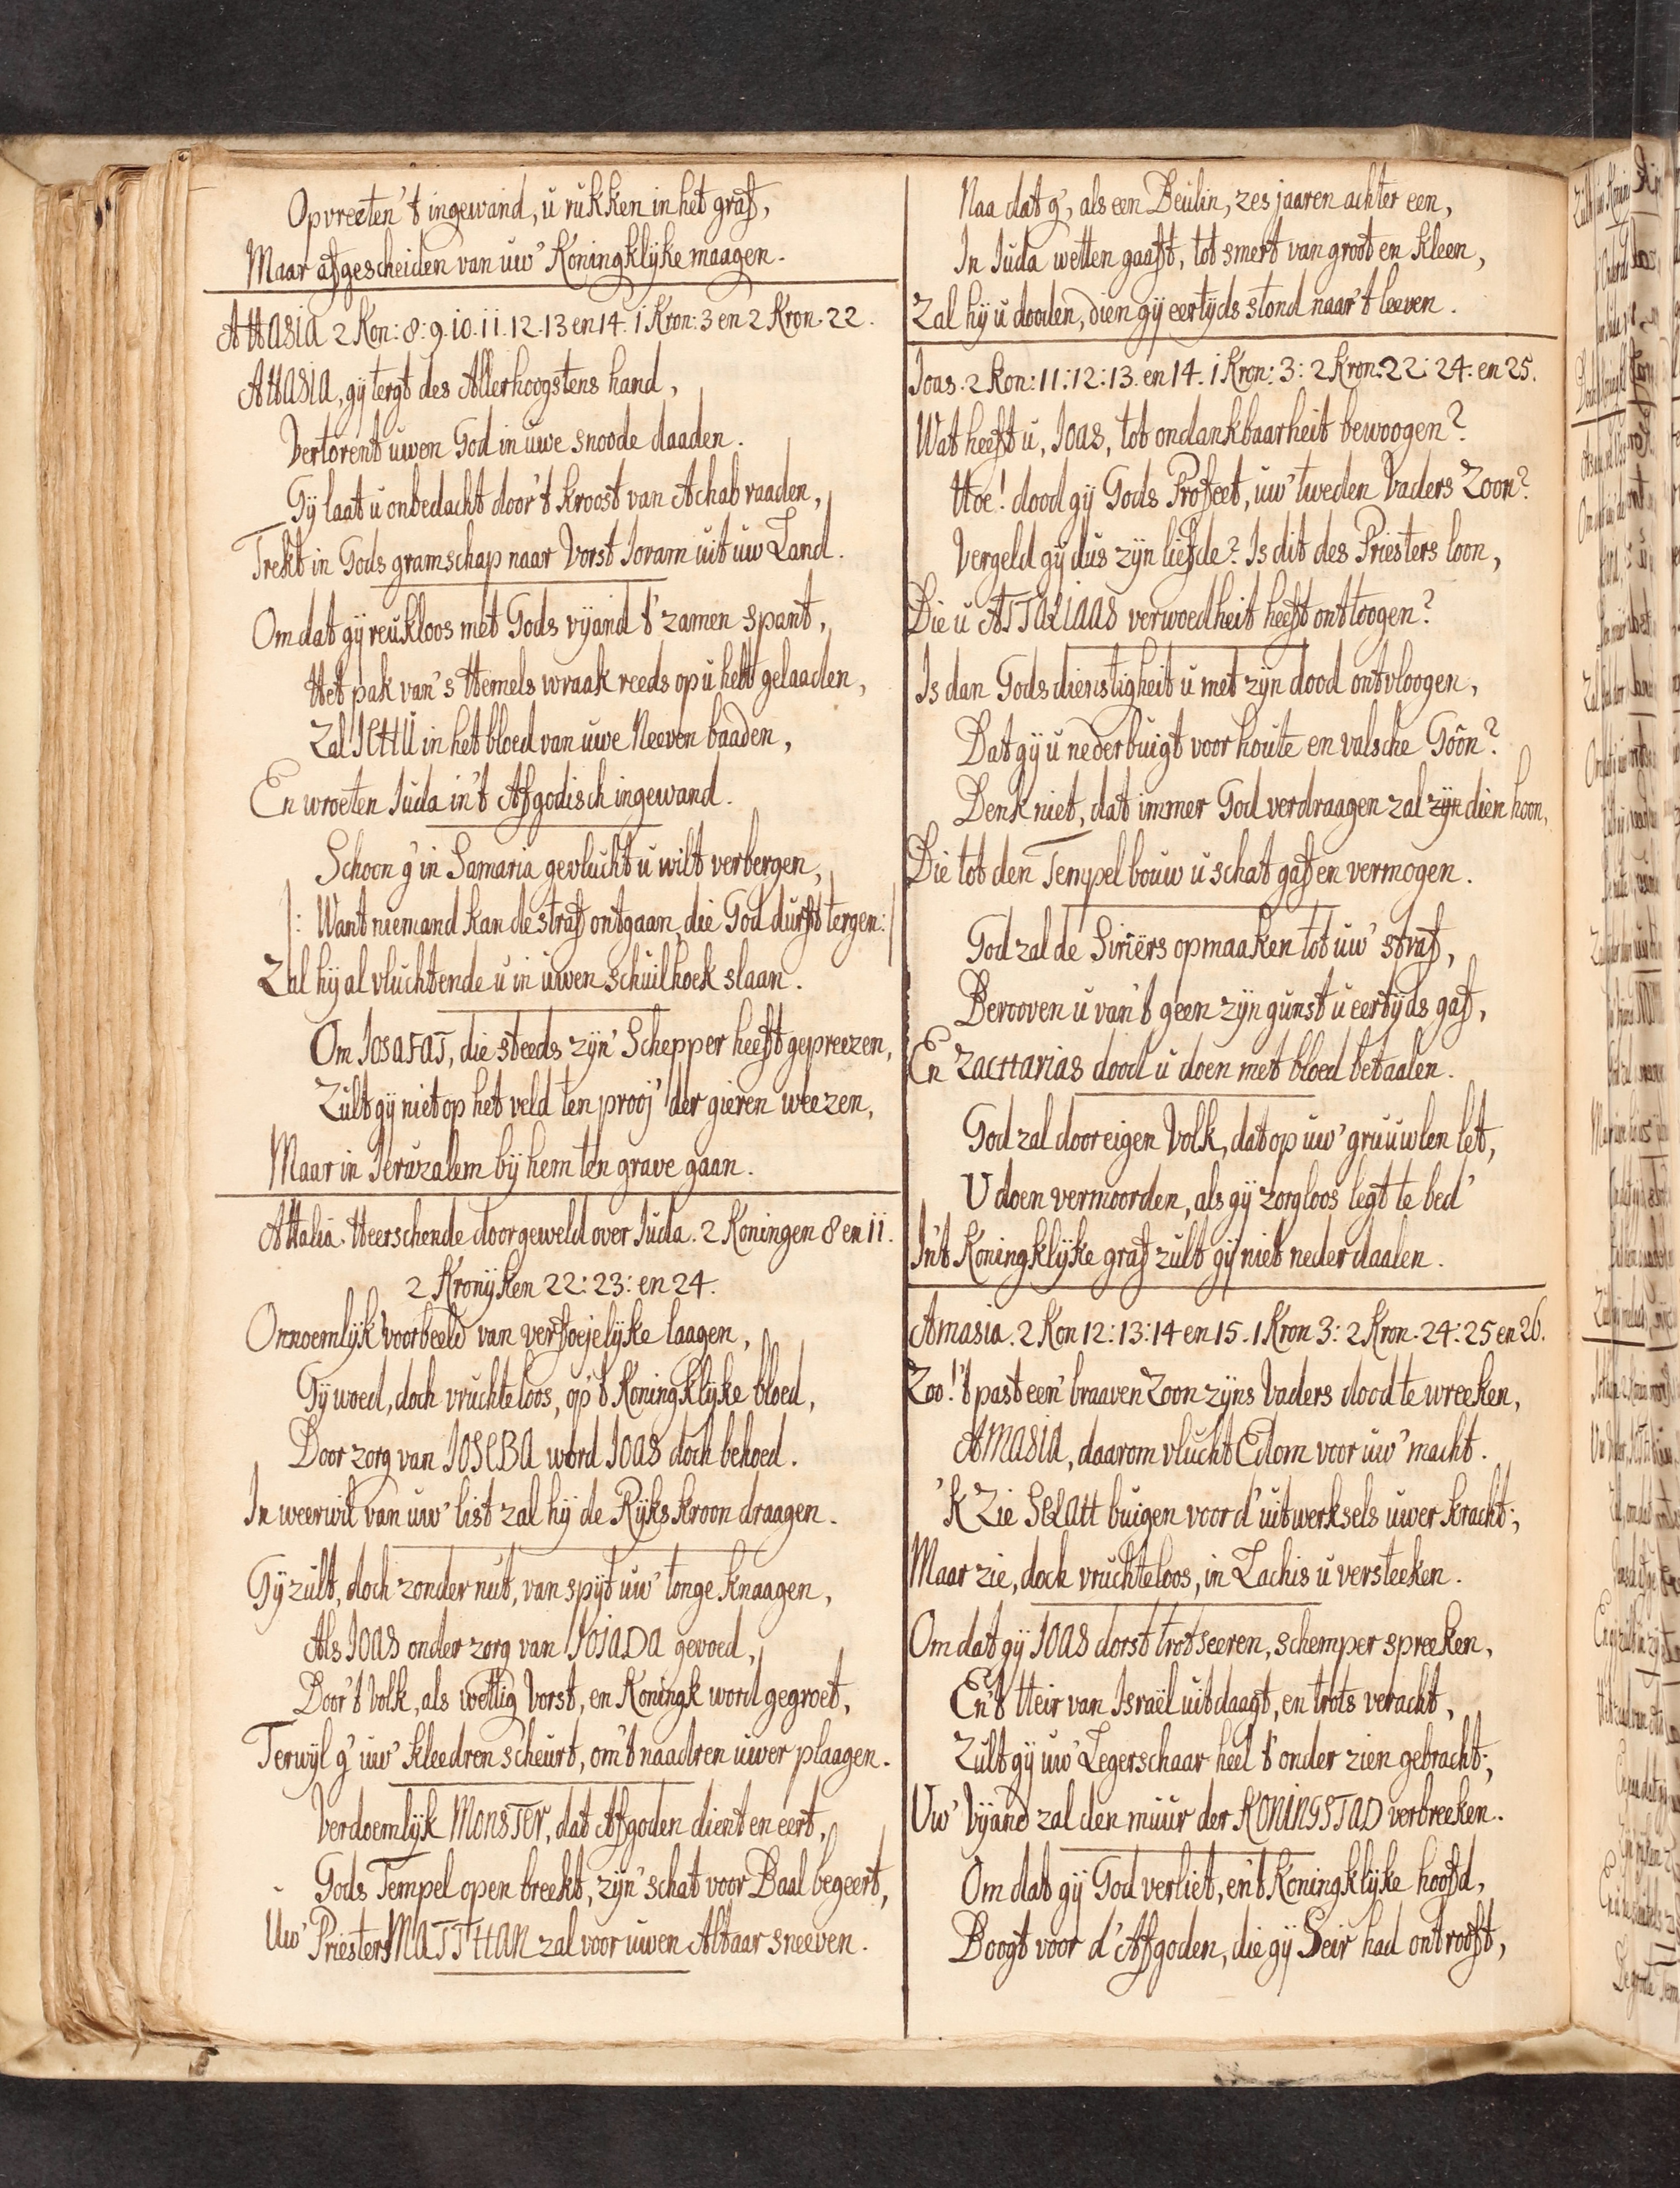 Opvreeten 't ingewand, u rukken in het graf,
Maar afgescheiden van uw' Koningklyke maagen.
AHASIA 2 Kon: 8: 9. 10. 11. 12. 13 en 14. 1 Kron: 3 en 2 Kron. 22.
AHASIA, gy tergt des Allerhoogstens hand,
Vertorent uwen God in uwe snoode daaden.
Gy laat u onbedacht door 't kroost van Achab raaden,
Trekt in Gods gramschap naar Vorst Joram uit uw Land.
Omdat gy reukloos met Gods vyand t' zamen spant,
Het pak van 's Hemels wraak reeds op u hebt gelaaden,
Zal JEHU in het bloed van uwe Neeven baaden,
En wroeten Juda in 't Afgodisch ingewand.
Schoon g' in Samaria gevlucht u wilt verbergen,
|: Want niemand kan de straf ontgaan, die God durft tergen: |
Zal hy al vluchtende u in uwen schuilhoek slaan.
Om JOSAFAT, die steeds zyn' Schepper heeft gepreezen,
Zult gy niet op het veld ten prooj' der gieren weezen,
Maar in Jeruzalem by hem ten grave gaan.
AHalia. Heerschende door geweld over Juda. 2 Koningen 8 en 11.
2 Kronyken 22: 23: en 24.
Onnoemlyk voorbeeld van verfoejelyke laagen,
Gy woed, doch vruchteloos, op 't Koningklyke bloed,
Door zorg van JOSEBA word JOAS doch behoed.
In weerwil van uw' list zal hy de Ryks kroon draagen.
Gy zult, doch zonder nut, van spyt uw' tonge knaagen,
Als JOAS onder zorg van JOJADA gevoed,
Door 't Volk, als wettig Vorst, en Koningk word gegroet,
Terwyl g' uw' kleedren scheurt, om 't naadren uwer plaagen.
Verdoemlyk MONSTER, dat Afgoden dient en eert,
Gods Tempel open breekt, zyn' schat voor Baal begeert,
Uw' Priester MATTHAN zal voor uwen Altaar sneeven.
Naa dat g', als een Beulin, zes jaaren achter een,
In Juda wetten gaaft, tot smert van groot en kleen,
Zal hy u dooden, dien gy eertyds stond naar 't leeven.
Joas. 2 Kon: 11: 12: 13. en 14. 1 Kron: 3: 2 Kron. 22: 24: en 25.
Wat heeft u, JOAS, tot ondankbaarheit bewoogen?
Hoe! dood gy Gods Profeet, uw' tweden Vaders Zoon?
Vergeld gy dus zyn liefde? Is dit des Priesters loon,
Die u ATTALIAAS verwoedheit heeft onttoogen?
Is dan Gods dienstigheit u met zyn dood ontvloogen,
Dat gy u nederbuigt voor houte en valsche Goôn?
Denk niet, dat immer God verdraagen zal zyn dien hoon,
Die tot den Tempel bouw u schat gaf en vermogen.
God zal de Siriërs opmaaken tot uw' straf,
Berooven u van 't geen zyn gunst u eertyds gaf,
En ZACHARIAS dood u doen met bloed betaalen.
God zal door eigen Volk, dat op uw' gruuwlen let,
U doen vermoorden, als gy zorgloos legt te bed'
In't Koningklyke graf zult gy niet neder daalen.
Amasia. 2 Kon 12: 13: 14 en 15. 1 Kron 3: 2 Kron. 24: 25 en 26.
Zoo! 't past een' braaven Zoon zyns Vaders dood te wreeken,
AMASIA, daarom vlucht Edom voor uw' macht.
'k Zie SELAH buigen voor d' uitwerksels uwer kracht;
Maar zie, doch vruchteloos, in Lachis u versteeken.
Om dat gy JOAS dorst trotseeren, schemper spreeken,
En 't Heir van Israël uitdaagt, en trots veracht,
Zult gy uw' Legerschaar heel t' onder zien gebracht;
Uw' Vyand zal den muur der KONINGSTAD verbreeken.
Om dat gy God verliet, en 't Koningklyke hoofd,
Boogt voor d' Afgoden, die gy Seir had ontrooft,